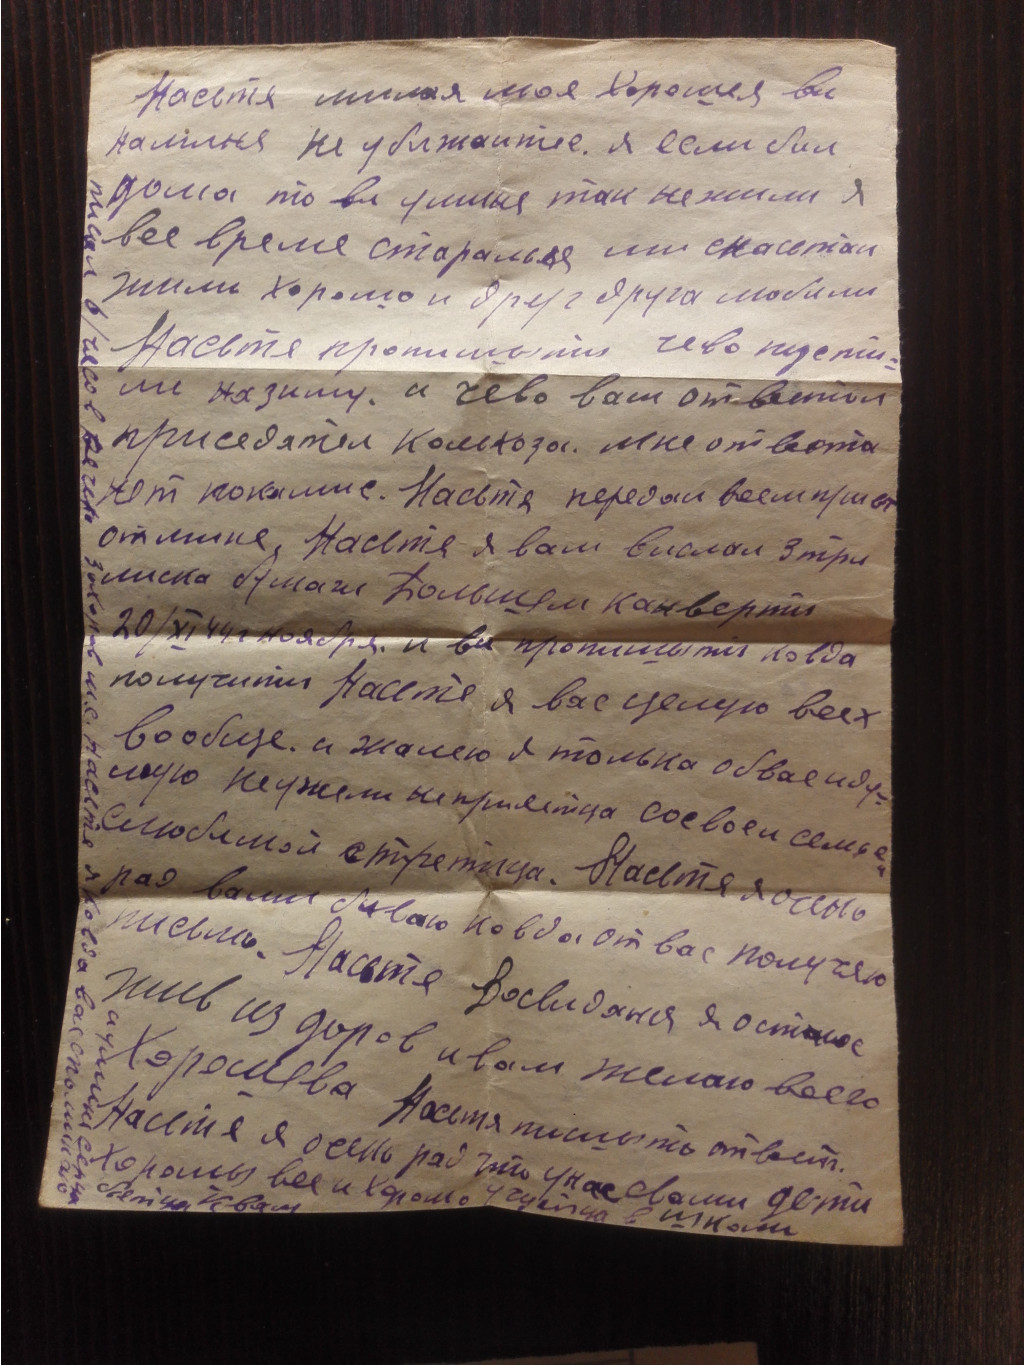 Насьтя милая моя Хорошея ви
намня не убяжаитес. я если бил
дома то ви уминя так нежили я
все време старалься ми снасьтай
жили Хорошо и друг друга любили
Насьтя пропишыти чево пусти-
ли назиму. и чево вам ответил
приседятел колхоза. мне ответа
нет покамис. Насьтя передай всем привет
отминя, Насьтя я вам вислал 3 три
лиска бумаги Большем канверти
20/XI 44г ноября. и ви пропишыти ковда
получити Насьтя я вас целую всех
вообще. и жалею я толька обвас иду-
маю неужели неприветца сосвоеи семьеи
слюбимой стретица. Насьтя я очень
рад вами биваю ковда от вас получяю
письмо. Насьтя Досвиданя я остаюс
жив издоров и вам желаю всего
Хорошева Насьтя пишыть ответ.
Насьтя я очень рад что унас свами дети
Хорошы все и Хорошо учуятца в школи
писал 6/часов вечира законов мс. Насьтя я ковда вас споминаю
и уминя серца
бьетца к вам